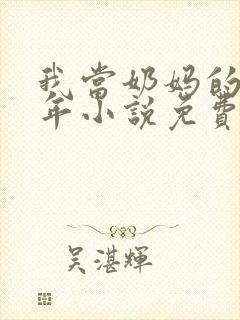 我當奶媽的
年小說免費
吴湛輝